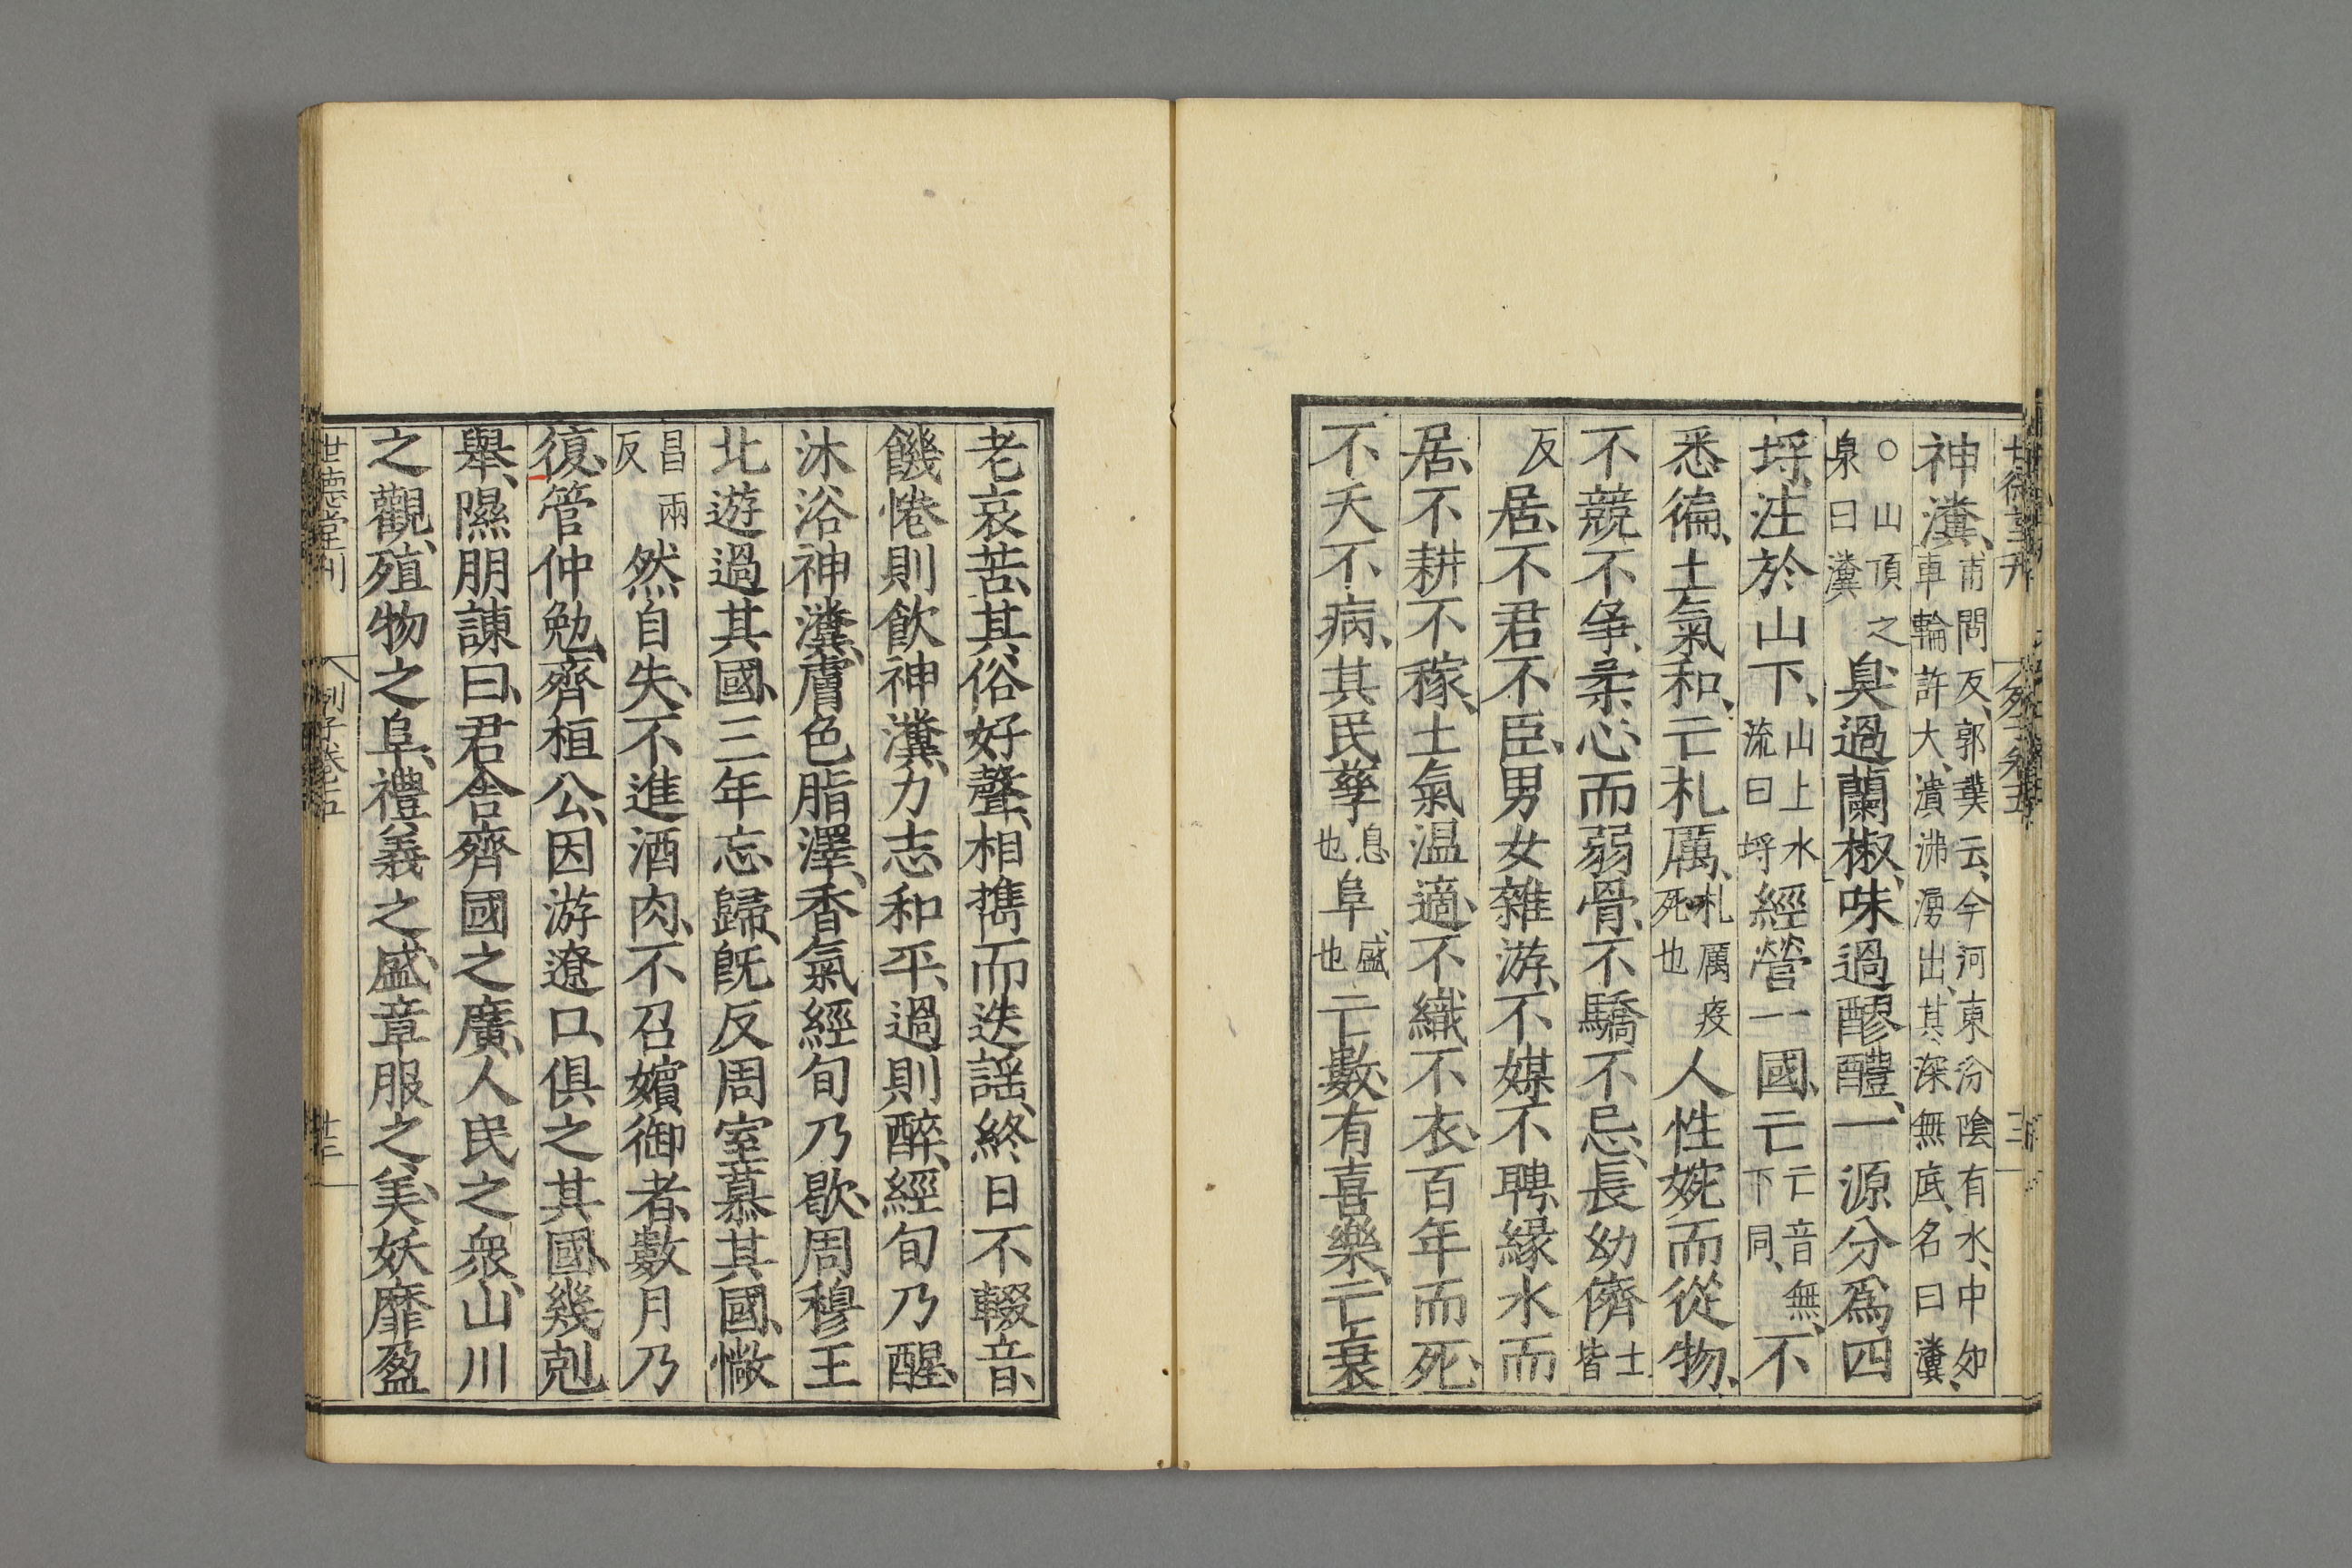 神瀵、甫問反、郭璞云、今河東汾陰有水、中如車輪許大、濆沸湧出、其深無底、名曰瀵、
○山頂之泉曰瀵臭過蘭椒、味過醪醴、一源分爲四
埒、注於山下、山上水流曰埒經營一國、亡亡音無、下同、不
悉徧、土氣和、亡札厲、札厲疫死也人性婉而從物、
不競不爭、柔心而弱骨、不驕不忌、長幼儕士皆
反居、不君不臣、男女雜游、不媒不聘、緣水而
居、不耕不稼、土氣温適、不織不衣、百年而死、
不夭不病、其民孳息也阜盛也亡數、有喜樂、亡衰
老哀苦、其俗好聲、相擕而迭謡、終日不輟音、
饑惓則飲神瀵、力志和平、過則醉、經旬乃醒、
沐浴神瀵、膚色脂澤、香氣經旬乃歇、周穆王
北遊過其國、三年忘歸、旣反周室、慕其國、惝
昌兩反然自失、不進酒肉、不召嬪御者、數月乃
復、管仲勉齊桓公、因游遼口、俱之其國、幾剋
舉、隰朋諫曰、君舎齊國之廣、人民之衆、山川
之觀、殖物之阜、禮義之盛、章服之美、妖靡盈
世德堂刊 列子卷五 十三